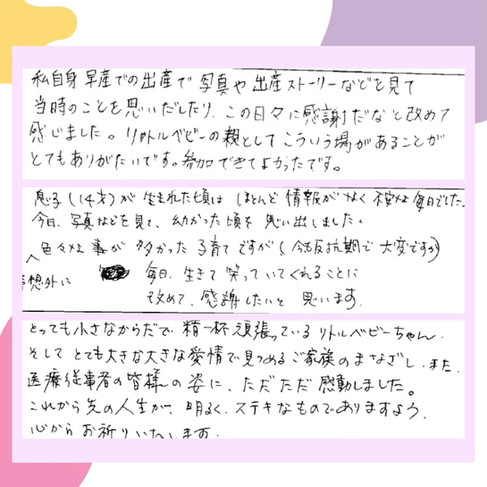 私自身早産での出産で写真や出産ストーリーなどを見て
当時のことを思いだしたり、この日々に感謝だなと改めて
感じました。リトルベビーの親としてこういう場があることが
とてもありがたいです。参加できてよかったです。
息子(14才)が生まれた頃はほとんど情報がなく不安な毎日でした。
今日、写真などを見て、幼かった頃を思い出しました。
色々な事が多かった子育てですが(今は反抗期で大変ですが)
予想外に
毎日、生きて笑っていてくれることに
改めて、感謝したいと思います。
とっても小さなからだで精一杯頑張っているリトルベビーちゃん、
そしてとても大きな大きな愛情で見つめるご家族のまなざし、また、
医療従事者の皆様の姿に、ただただ感動しました。
これから先の人生が、明るく、ステキなものでありますよう、
心からお祈りいたします。